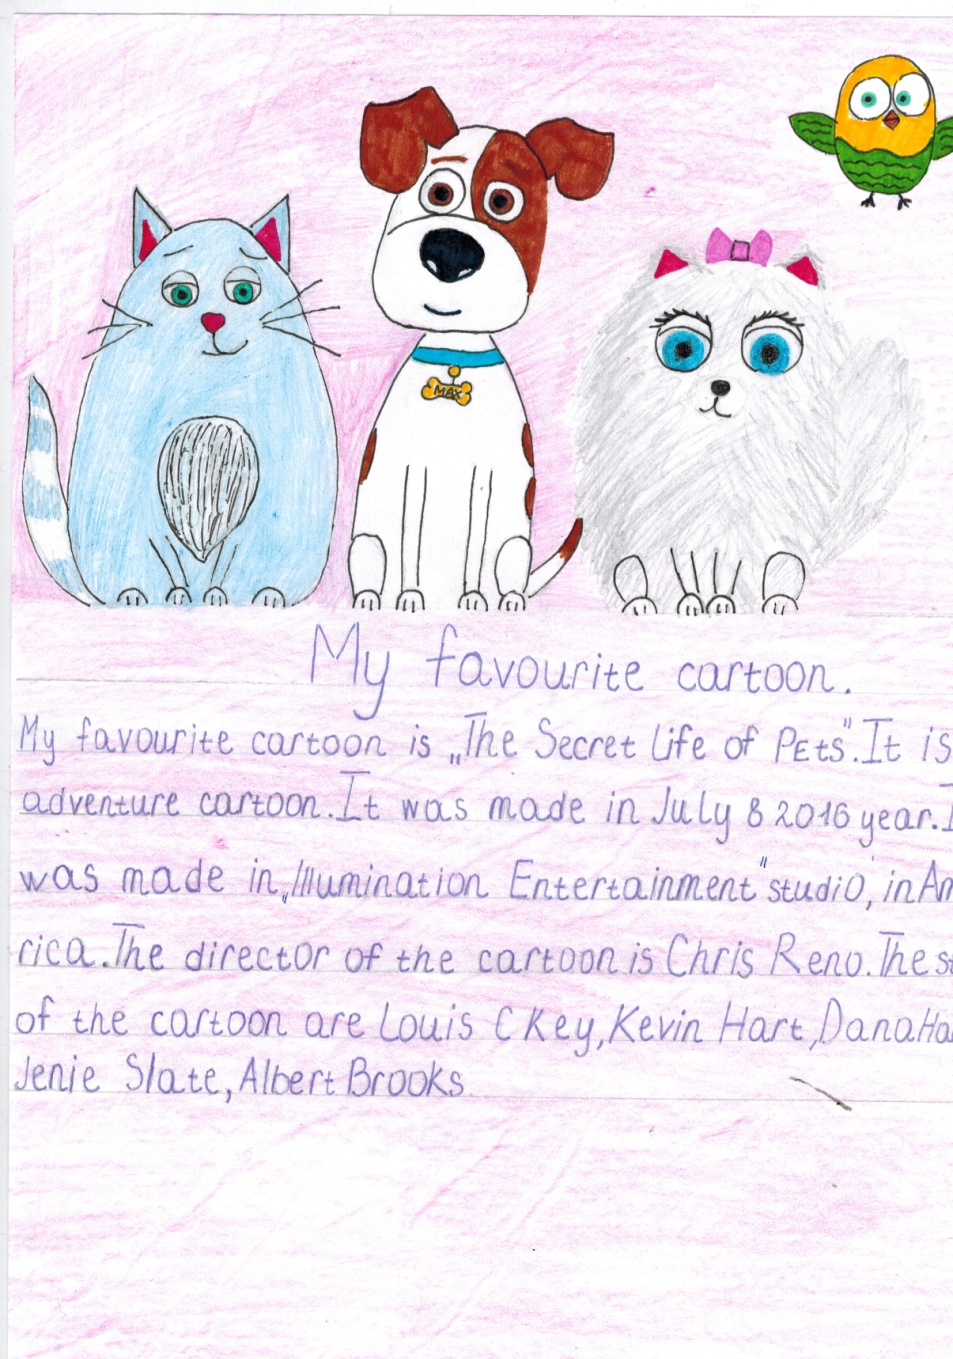 MAX
My favourite cartoon.
My favourite cartoon is „The Secret life of PEts". It is
adventure cartoon. It was made in July 8 2016 year.
was made in „Illumination Entertainment" studio, in Am
rica. The director of the cartoon is Chris Reno. The st
of the cartoon are Louis C Key, Kevin Hart, Dana Ha
Jenie Slate, Albert Brooks